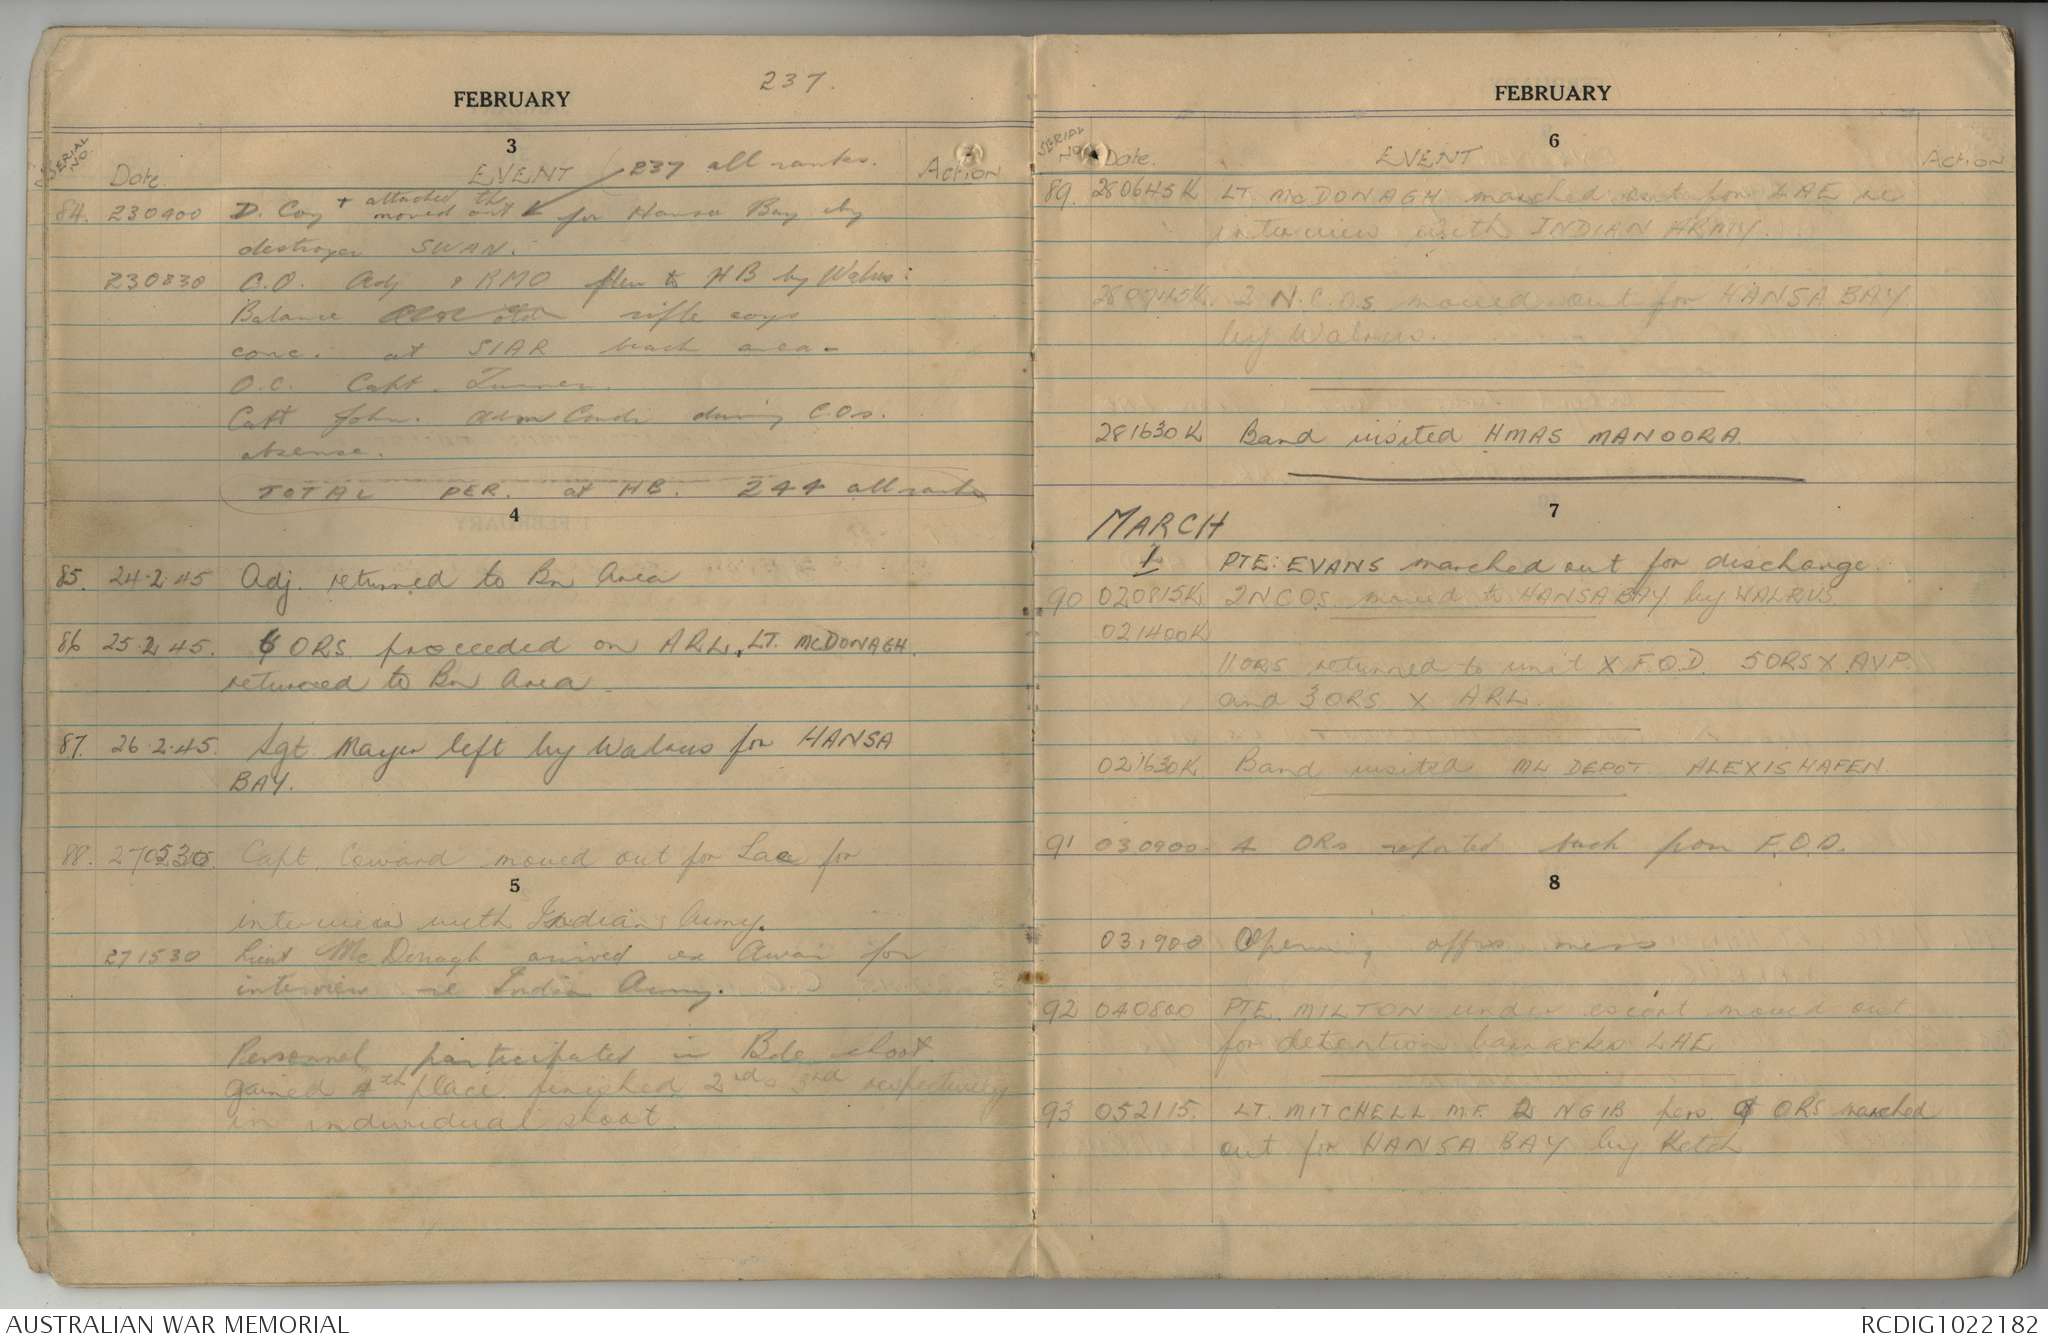 237.
FEBRUARY
3
SERIAL NO. Date. EVENT 237 all ranks. Action
84. 230900 D. Coy + attached tps moved out for Hansa Bay by
destroyer SWAN.
230830 C.O. Adj & RMO flew to HB by Walrus:
Balance rifle coys
conc. at SIAR beach area.
O.C. Capt. Turner.
Capt John. Adm Comdr during C.Os.
absense.
TOTAL PER. at HB. 244 all ranks
4
85. 24.2.45 Adj. returned to Bn Area
86 25.2.45. 6 ORS proceeded on ARL, LT. McDONAGH.
returned to Bn Area.
87. 26.2.45. Sgt Mayer left by Walrus for HANSA
BAY.
88. 270530. Capt. Coward moved out for Lae for
5
interview with Indian Army.
271530 Lieut McDonagh arrived ex Awar for
interview re Indian Army.
Personnel participated in Bde shoot
gained 4th place. finished 2nd & 3rd respectively
in individual shoot.
FEBRUARY
6
SERIAL NO. Date. EVENT Action
89. 280645K LT. McDONAGH marched out for LAE re
interview with INDIAN ARMY.
280945K. 2 N.C.O.s moved out for HANSA BAY
by Walrus.
281630K Band visited HMAS MANOORA.
7
MARCH
1 PTE: EVANS marched out for discharge.
90 020815K 2NCOS. moved to HANSA BAY by WALRUS.
021400K
11 ORS returned to unit X F.O.D. 5ORS X AVP.
and 3 ORS X ARL.
021630K Band visited ML DEPOT ALEXISHAFEN.
91 030900. 4 ORs reported back from F.O.D.
8
031900 Opening offrs mess
92 040800 PTE. MILTON under escort moved out
for detention barracks LAE
93 052115. LT. MITCHELL M.F. 2 NGIB pers. 9 ORS marched
out for HANSA BAY by Ketch
AUSTRALIAN WAR MEMORIAL
RCDIG1022182